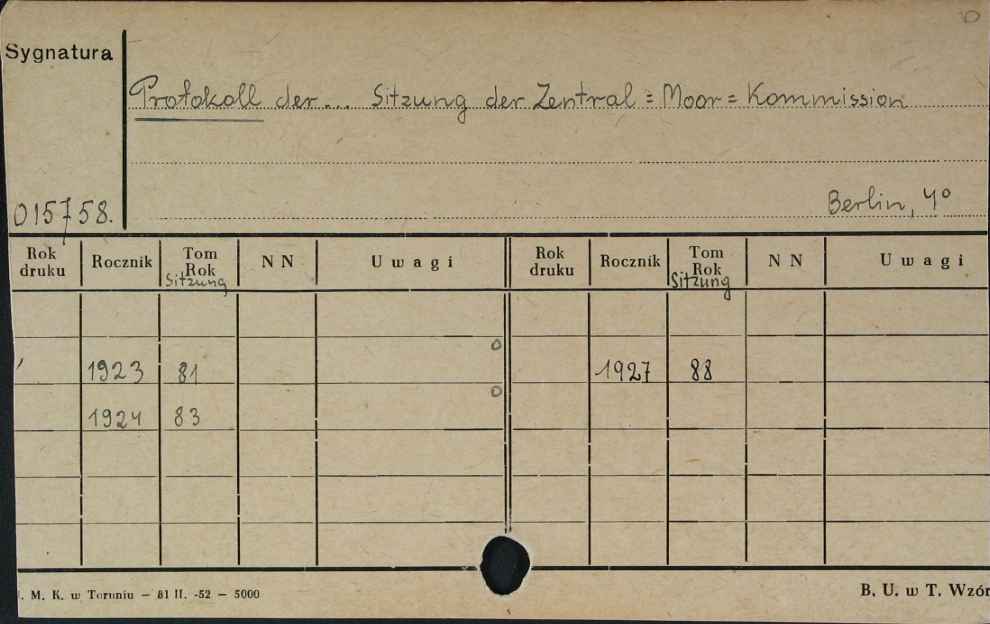 Sygnatura
Protokoll der... Sitzung der Zentral = Moor = Kommission
015758.
Berlin, 4°
Rok druku Rocznik Tom Rok Sitzung NN Uwagi Rok druku Rocznik Tom Rok Sitzung NN Uwagi
1923 81 1927 88
1924 83
. M. K. w Toruniu — 81 II. -52 — 5000
B. U. w T. Wzór